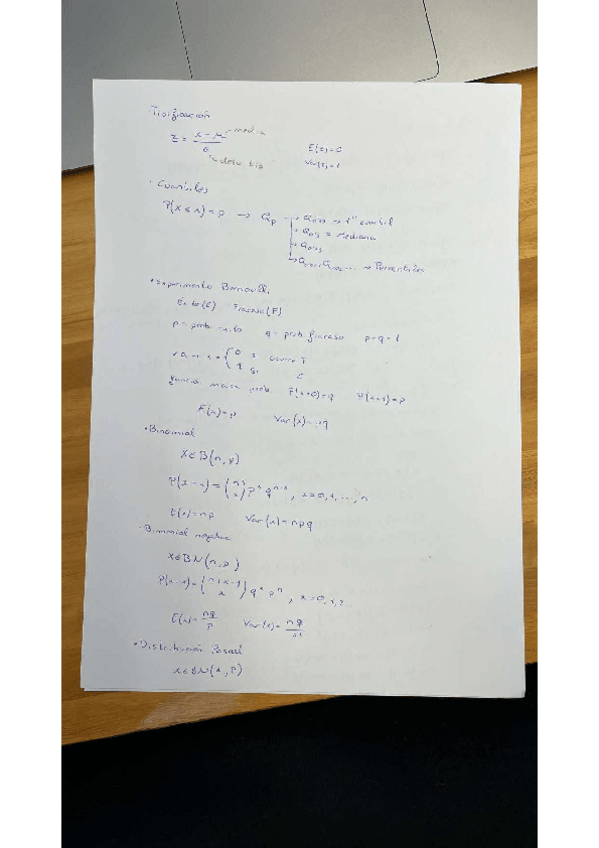 Tipificación
z = (x - μ)/σ   media   E(z)=0
desv tip   Var(z)=1
· Cuantiles
P(X ≤ x) = p → Qp → Q0'25 → 1er cuartil
→ Q0'5 = Mediana
→ Q0'75
→ Q0'01, Q0'02 ... → Percentiles
• Experimento Bernoulli
Éxito (E)   Fracaso (F)
p = prob éxito   q = prob fracaso   p+q = 1
v.a → x = { 0 si ocurre F
1 si   E
función masa prob   P(x=0)=q   P(x=1)=p
E(x)=p   Var(x)=pq
• Binomial
X ∈ B(n, p)
P(x=x) = (n x) p^x q^(n-x), x=0,1,...,n
E(x)=np   Var(x)=npq
· Binomial negativa
X ∈ BN(n, p)
P(x=x) = (n+x-1 x) q^x p^n, x=0,1,2
E(x)= nq/p   Var(x)= nq/p²
• Distribución Pascal
X ∈ BN(   , p)